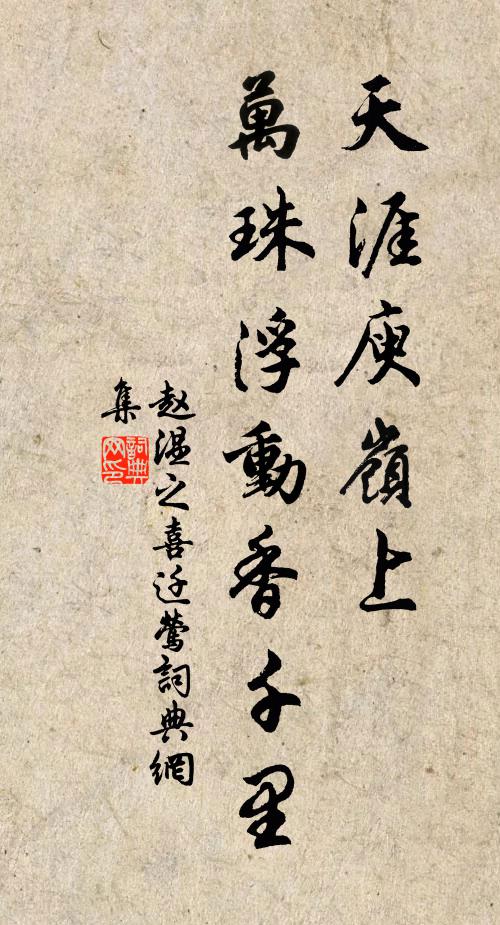 天涯庾嶺上
萬珠浮動香千里
赵溫之喜迁鶯詞典網
集
詞典
网印